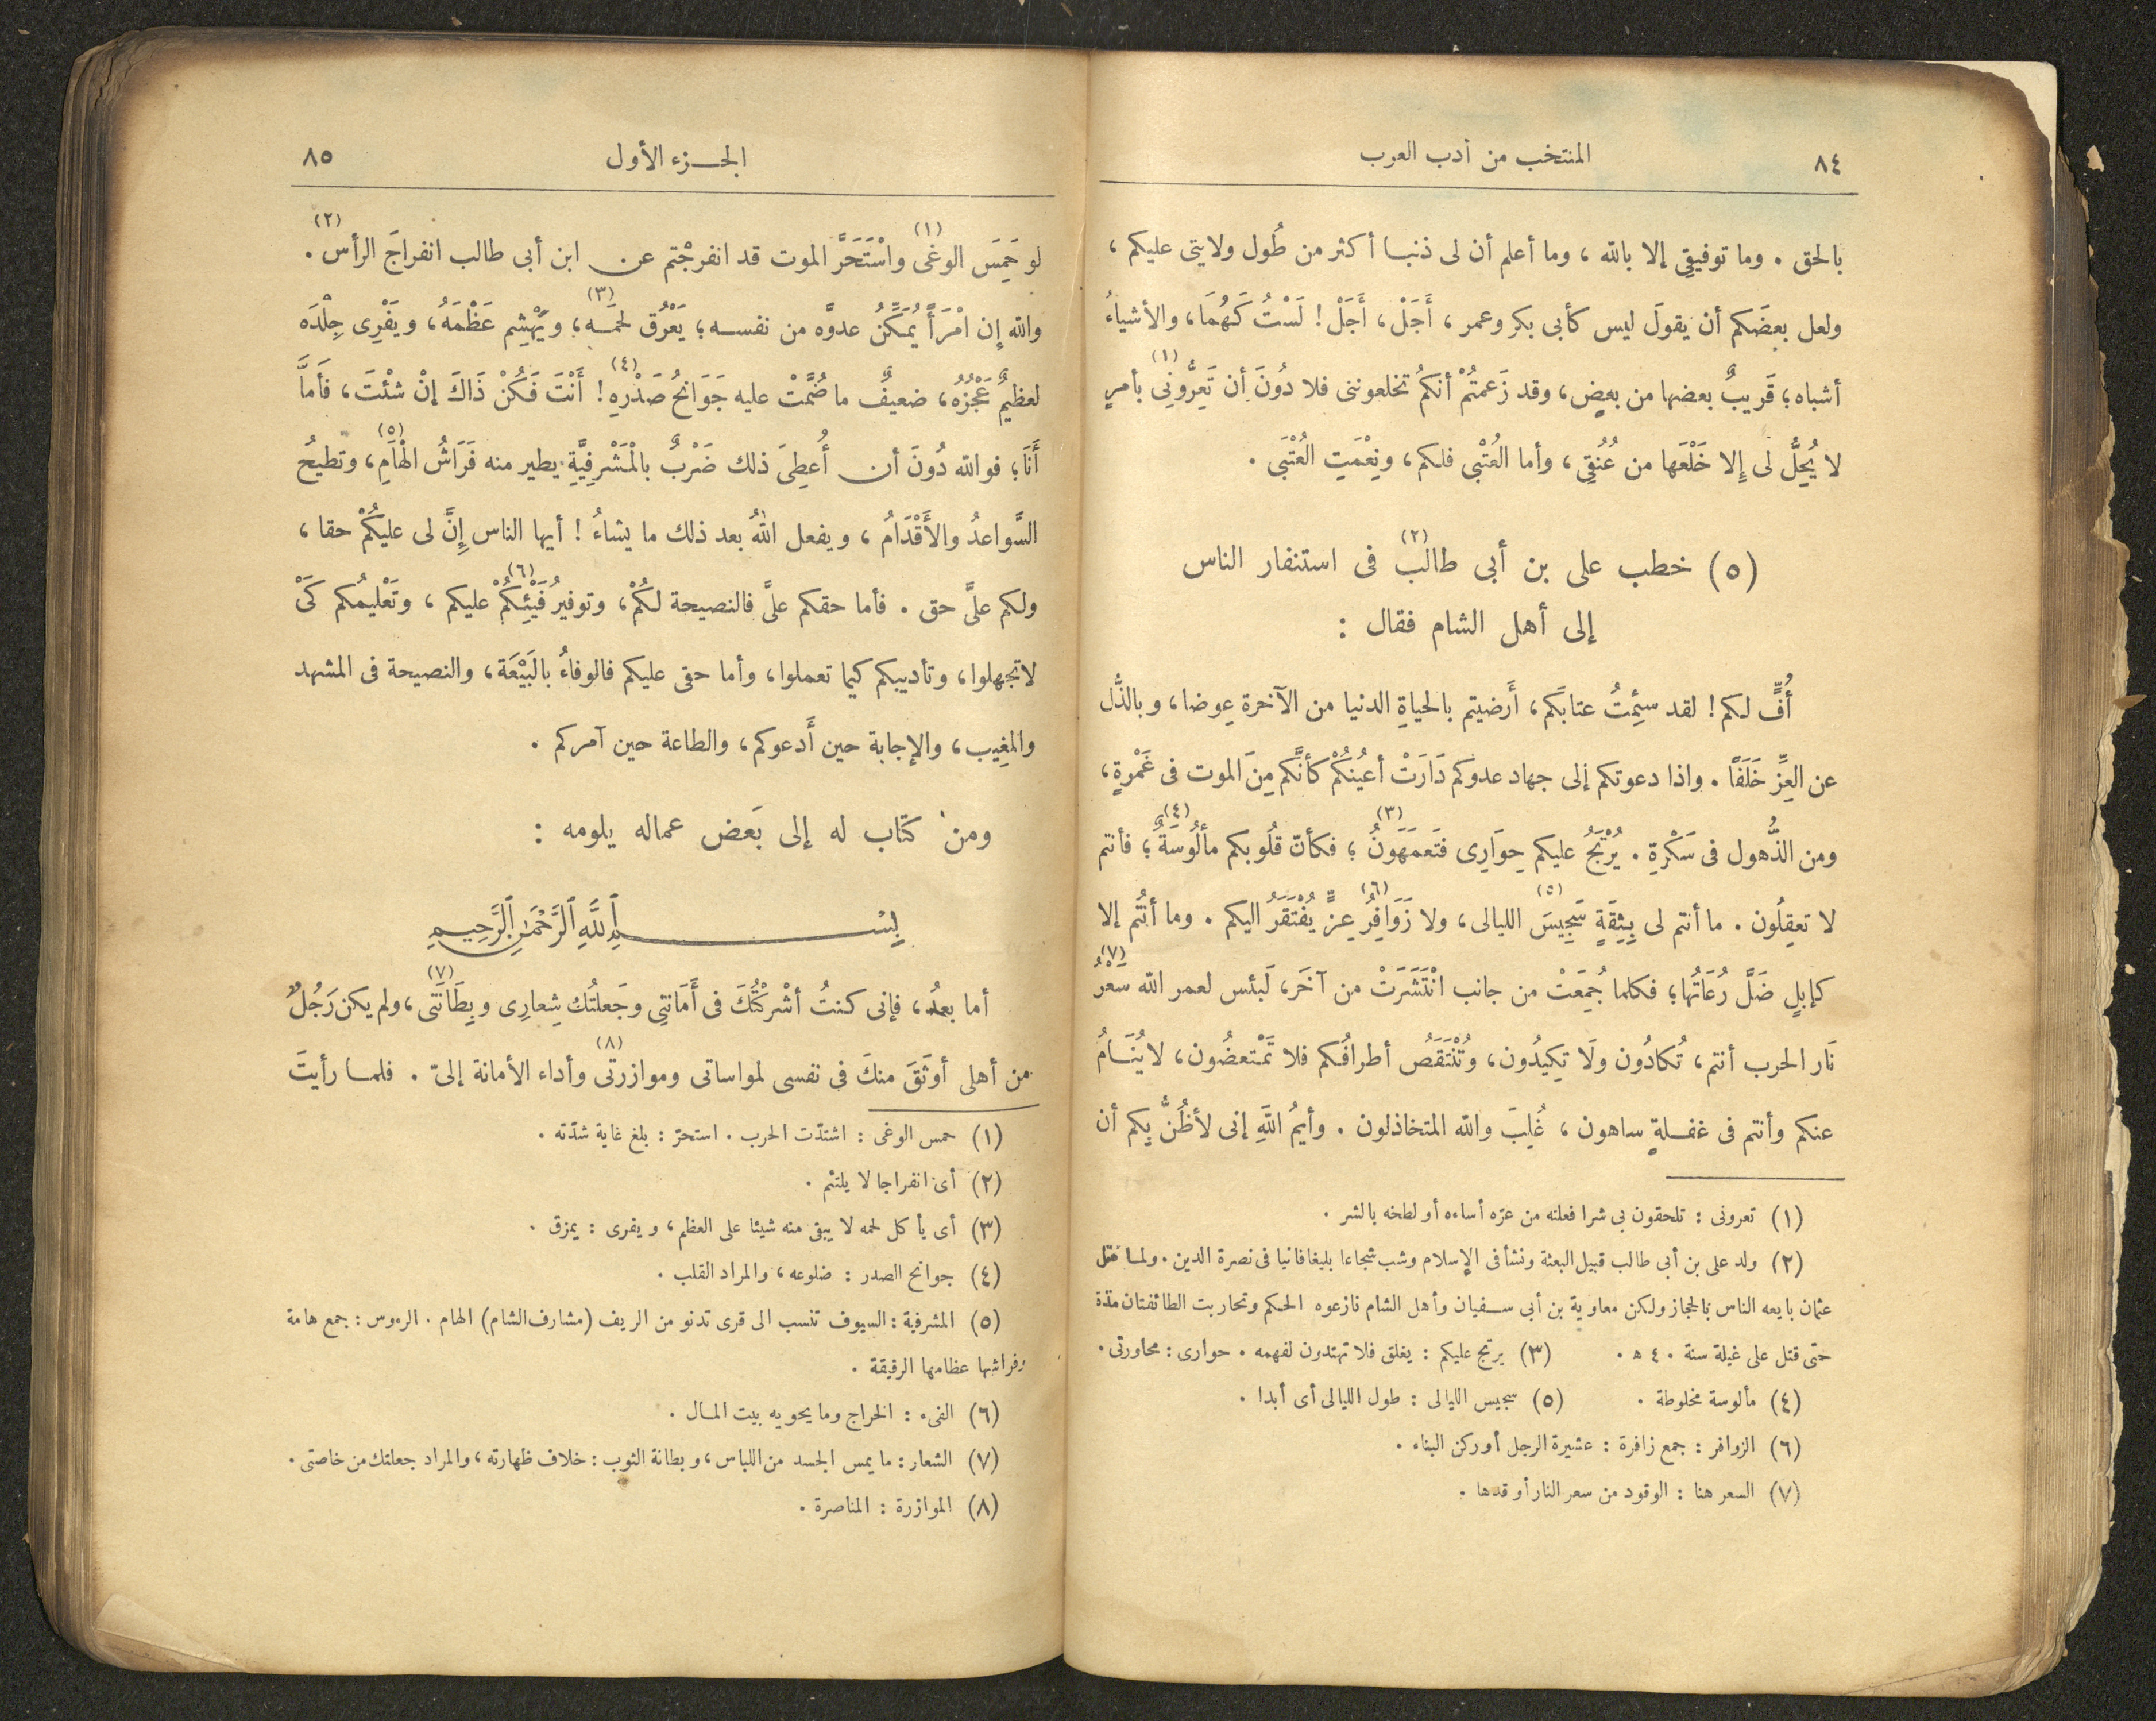 ٨٤
المنتخب من أدب العرب
بالحق . وما توفيقى إلا بالله ، وما أعلم أن لى ذنبا أكثر من طُول ولايتى عليكم ،
ولعل بعضَكم أن يقولَ ليس كأبى بكر وعمر ، أَجَلْ ، أَجَلْ ! لَسْتُ كَهُمَا ، والأشياءُ
أشباه ؛ قَريبٌ بعضها من بعضٍ ، وقد زَعمتُمْ أنكمُ تخلعوننى فلا دُونَ أن تَعِرُّونِى (١) بأمرٍ
لا يُحِلُّ لى إلا خَلْعَها من عُنُقِى ، وأما العُتْبى فلكم ، ونِعْمَتِ العُتْبَى .
(٥) خطب على بن أبى طالب (٢) فى استنفار الناس
إلى أهل الشام فقال :
أُفٍّ لكم ! لقد سئِمتُ عتابَكم ، أَرضيتم بالحياةِ الدنيا من الآخرة عِوضا ، وبالذُّل
عن العِزِّ خَلَفًا . واذا دعوتكم إلى جهاد عدوكم دَارَتْ أعيُنكُمْ كأنَّكم مِنَ الموت فى غَمْرةٍ ،
ومن الذُّهول فى سَكْرةِ . يُرْتَجُ عليكم حِوَارِى فتَعمَهَونُ (٣) ؛ فكأنّ قلُوبكم مألُوسَةٌ (٤) ؛ فأنتم
لا تعقِلُون . ما أنتم لى بِثِقَةٍ سَجِيسَ (٥) الليالى ، ولا زَوَافِرُ (٦) عِزٍّ يُفْتَقَرُ اليكم . وما أنتُم إلا
كإبلٍ ضَلَّ رُعَاتُها ؛ فكلما جُمِعَتْ من جانب انْتَشَرَتْ من آخَر ، لَبئس لعمر الله سَعْرُ (٧)
نَار الحرب أنتم ، تُكادُون ولَا تكِيدُون ، وتُنْتَقَصُ أطرافُكم فلا تَمْتعضُون ، لا يُنَامُ
عنكم وأنتم فى غفلةٍ ساهون ، غُلِبَ والله المتخاذلون . وأيمُ اللهِ إنى لأظُنُّ بكم أن
(١) تعرونى : تلحقون بى شرا فعلته من عرّه أساءه أو لطخه بالشر .
(٢) ولد على بن أبى طالب قبيل البعثة ونشأ فى الإسلام وشب شجاعا بليغا فانيا فى نصرة الدين . ولما قتل
عثمان بايعه الناس بالحجاز ولكن معاوية بن أبى سفيان وأهل الشام نازعوه الحكم وتحاربت الطائفتان مدّة
حتى قتل على غيلة سنة ٤٠ ه . (٣) يرتج عليكم : يغلق فلا تهتدون لفهمه . حوارى : محاورتى .
(٤) مألوسة مخلوطة . (٥) سجيس الليالى : طول الليالى أى أبدا .
(٦) الزوافر : جمع زافرة : عشيرة الرجل أو ركن البناء .
(٧) السعر هنا : الوقود من سعر النار أوقدها .
الجزء الأول
٨٥
لو حَمِسَ الوغَى (١) واسْتَحَرَّ الموت قد انفرجْتم عن ابن أبى طالب انفراجَ الرأس (٢) .
والله إن امْرَأً يُمَكِّنُ عدوَّه من نفسه ؛ يَعْرُق لحمَه (٣) ، ويَهْشِم عَظْمَهُ ، ويَفْرِى جِلْدَه
لعظيمٌ عَجْزُهُ ، ضعيفٌ ما ضُمَّتْ عليه جَوَانحُ صَدْرِهِ (٤) ! أَنْتَ فَكُنْ ذَاكَ إنْ شئْتَ ، فَأمَّا
أَنَا ؛ فوالله دُونَ أن أُعطِىَ ذلك ضَرْبٌ بالْمَشْرِفِيَّةِ يطير منه فَرَاشُ الْهَامِ (٥) ، وتطيحُ
السَّواعدُ والأَقْدَامُ ، ويفعل اللهُ بعد ذلك ما يشاءُ ! أيها الناس إنَّ لى عليكُمْ حقا ،
ولكم علىَّ حق . فأما حقكم علىَّ فالنصيحة لكُمْ ، وتوفيرُ فَيْئِكُمْ (٦) عليكم ، وتَعْليمُكم كَىْ
لا تجهلوا ، وتأديبكم كيما تعملوا ، وأما حقى عليكم فالوفاءُ بالبَيْعَة ، والنصيحة فى المشهد
والمغِيب ، والإجابة حين أَدعوكم ، والطاعة حين آمركم .
ومن كتاب له إلى بَعض عماله يلومه :
بِسْمِ ٱللَّهِ ٱلرَّحْمَٰنِ ٱلرَّحِيمِ
أما بعدُ ، فإنى كنتُ أشْركْتُكَ فى أَمَانتِى وجَعلتُك شِعارِى وبِطَانَتى (٧) ، ولم يكن رَجُلٌ
من أهلى أوثَقَ منكَ فى نفسى لمواساتى وموازرتى (٨) وأداء الأمانة إلىّ . فلما رأيتَ
(١) حمس الوغى : اشتدّت الحرب . استحرّ : بلغ غاية شدّته .
(٢) أى انفراجا لا يلتئم .
(٣) أى يأكل لحمه لا يبقى منه شيئا على العظم ، ويفرى : يمزق .
(٤) جوانح الصدر : ضلوعه ، والمراد القلب .
(٥) المشرفية : السيوف تنسب الى قرى تدنو من الريف (مشارف الشام) الهام . الرءوس : جمع هامة
وفراشها عظامها الرقيقة .
(٦) الفىء : الخراج وما يحويه بيت المال .
(٧) الشعار : ما يمس الجسد من اللباس ، وبطانة الثوب : خلاف ظهارته ، والمراد جعلتك من خاصتى .
(٨) الموازرة : المناصرة .